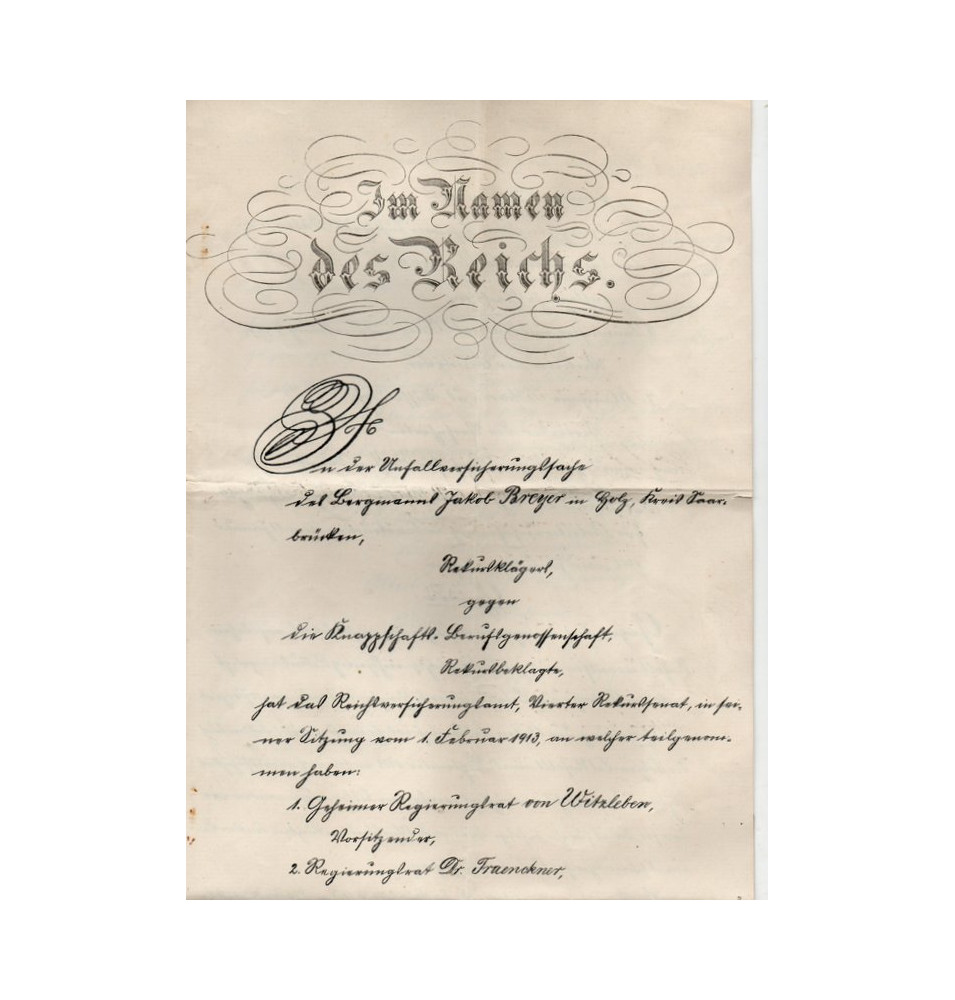 Im Namen
des Reichs.
In der Unfallversicherungssache
des Bergmanns Jakob Breyer in Holz, Kreis Saar-
brücken,
Rekursklägers,
gegen
die Knappschafts-Berufsgenossenschaft,
Rekursbeklagte,
hat das Reichsversicherungsamt, Vierter Rekurssenat, in sei-
ner Sitzung vom 1. Februar 1913, an welcher teilgenom-
men haben:
1. Geheimer Regierungsrat von Witzleben,
Vorsitzender,
2. Regierungsrat Dr. Fraenckner,